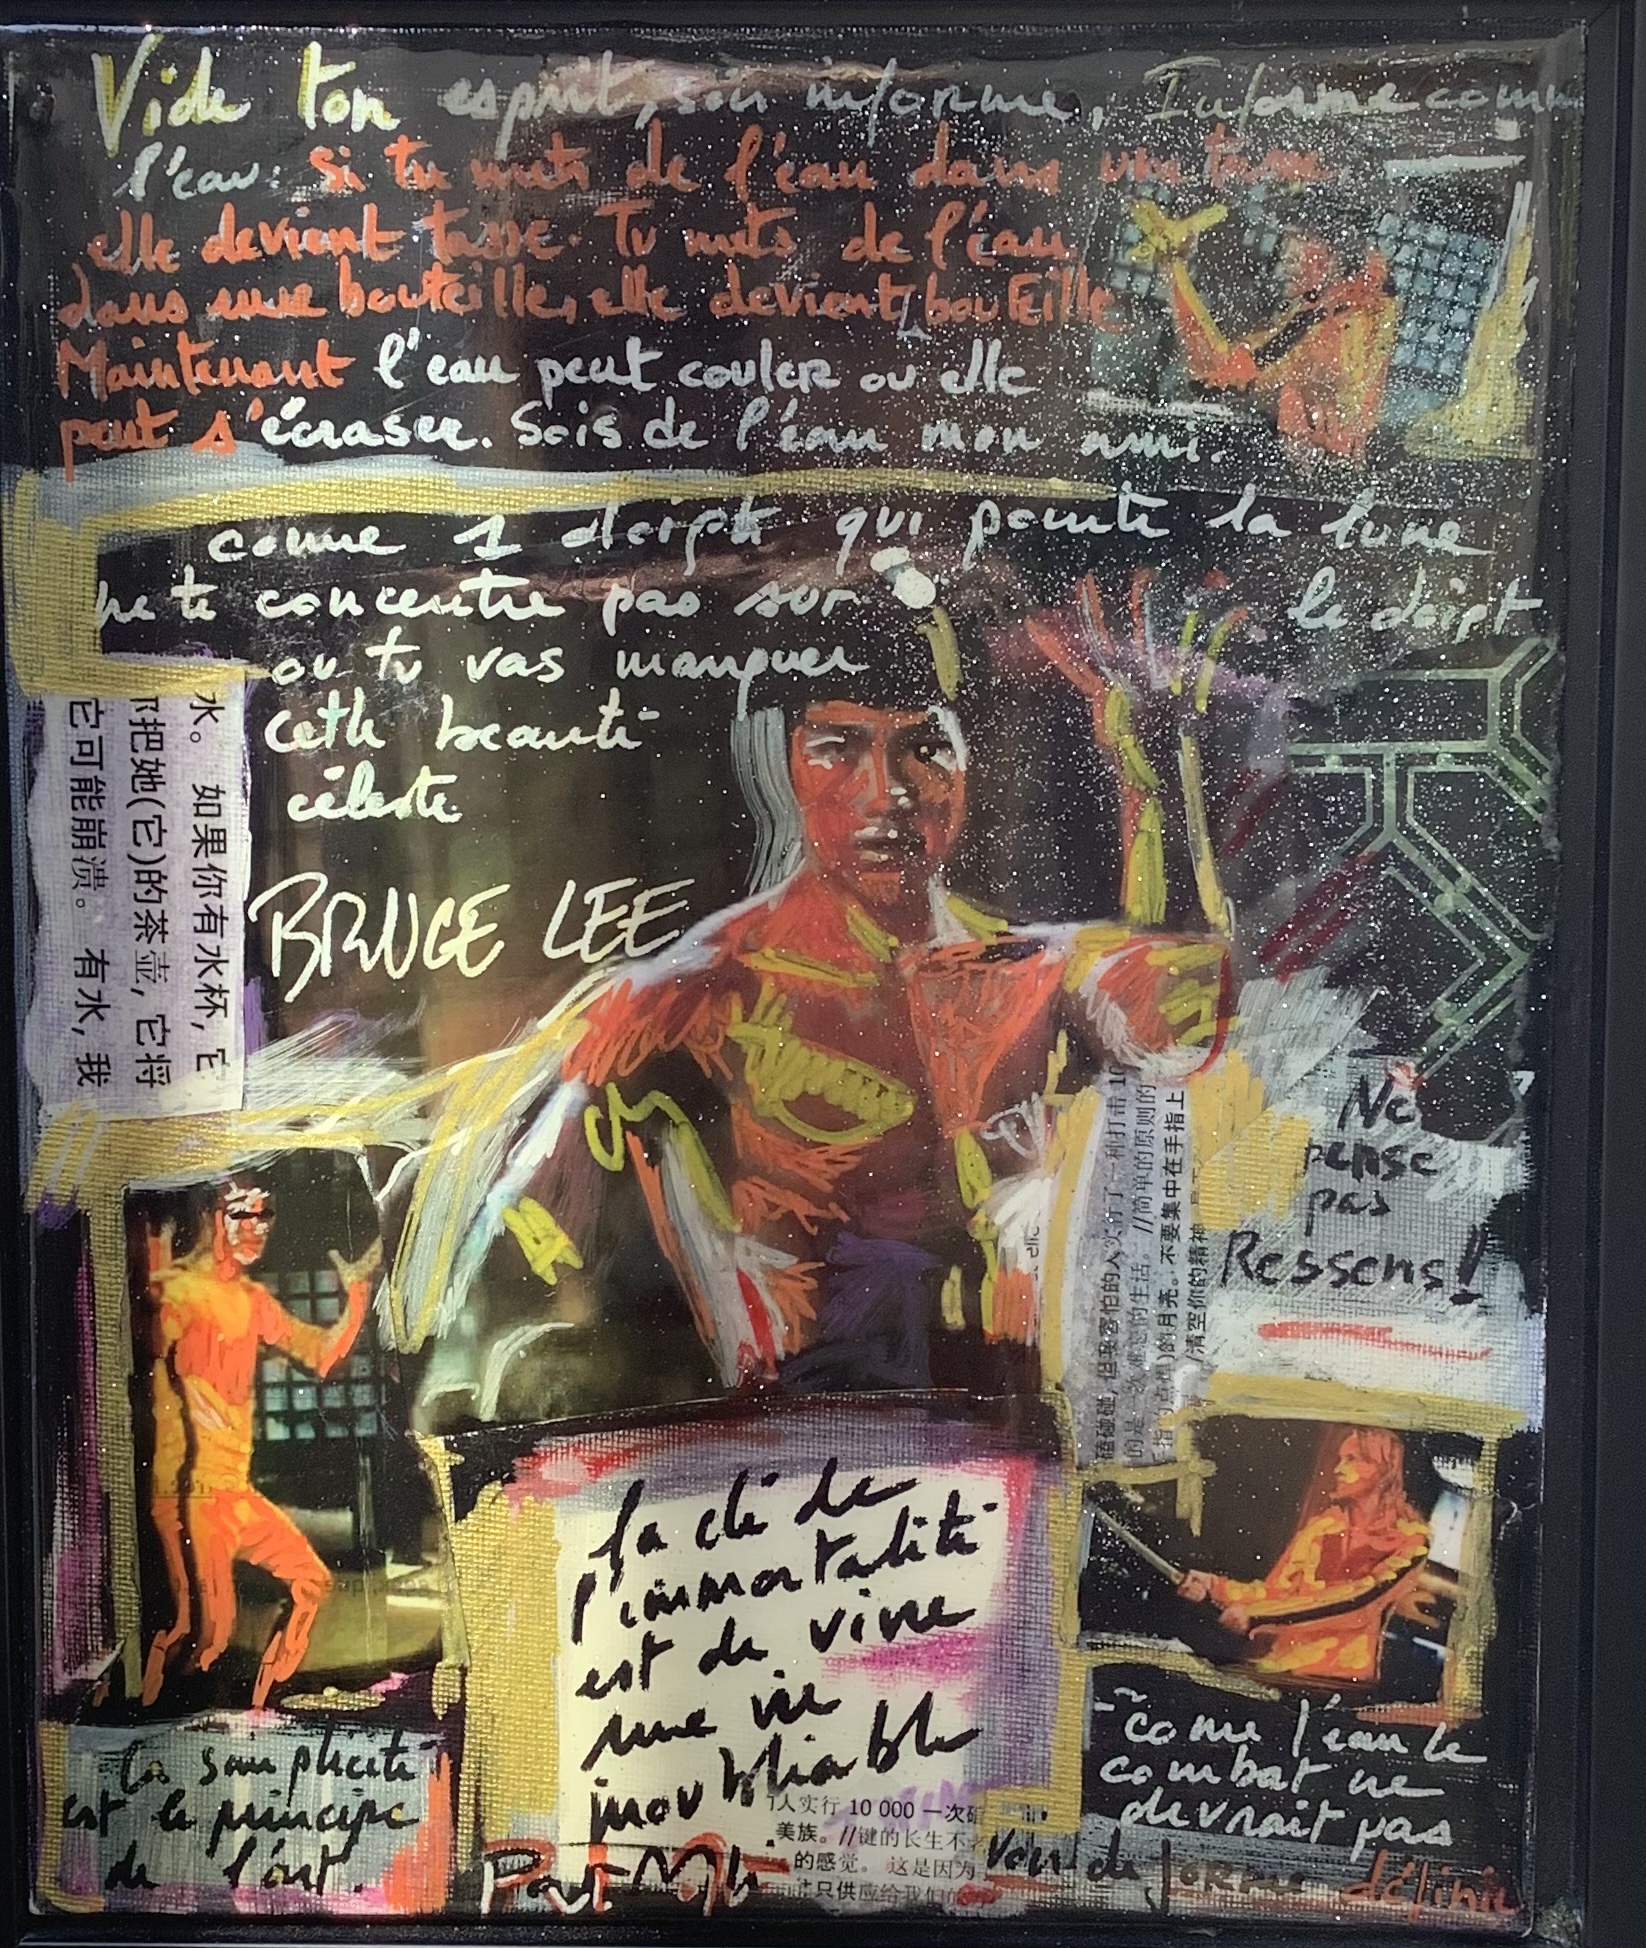 Vide ton esprit, sois informe, Informe comm
l'eau. Si tu mets de l'eau dans une tasse
elle devient tasse. Tu mets de l'eau
dans une bouteille, elle devient bouteille
Maintenant l'eau peut couler ou elle
peut s'écraser. Sois de l'eau mon ami.
comme 1 doigt qui pointe la lune
ne te concentre pas sur le doigt
ou tu vas manquer
cette beauté
céleste
水。 如果你有水杯，它
把她(它)的茶壶，它将
它可能崩溃。 有水，我
BRUCE LEE
Ne
pense
pas
Ressens!
的人实行了一种打击10
的生活。//简单的原则的
的月亮。不要集中在手指上
/清空你的精神
La clé de
l'immortalité
est de vivre
une vie
inoubliable
人实行 10 000 一次
美族。//键的长生不
的感觉。 这是因为
只供应给我们
La simplicité
est le principe
de l'art.
- come l'eau le
combat ne
devrait pas
de forme définie